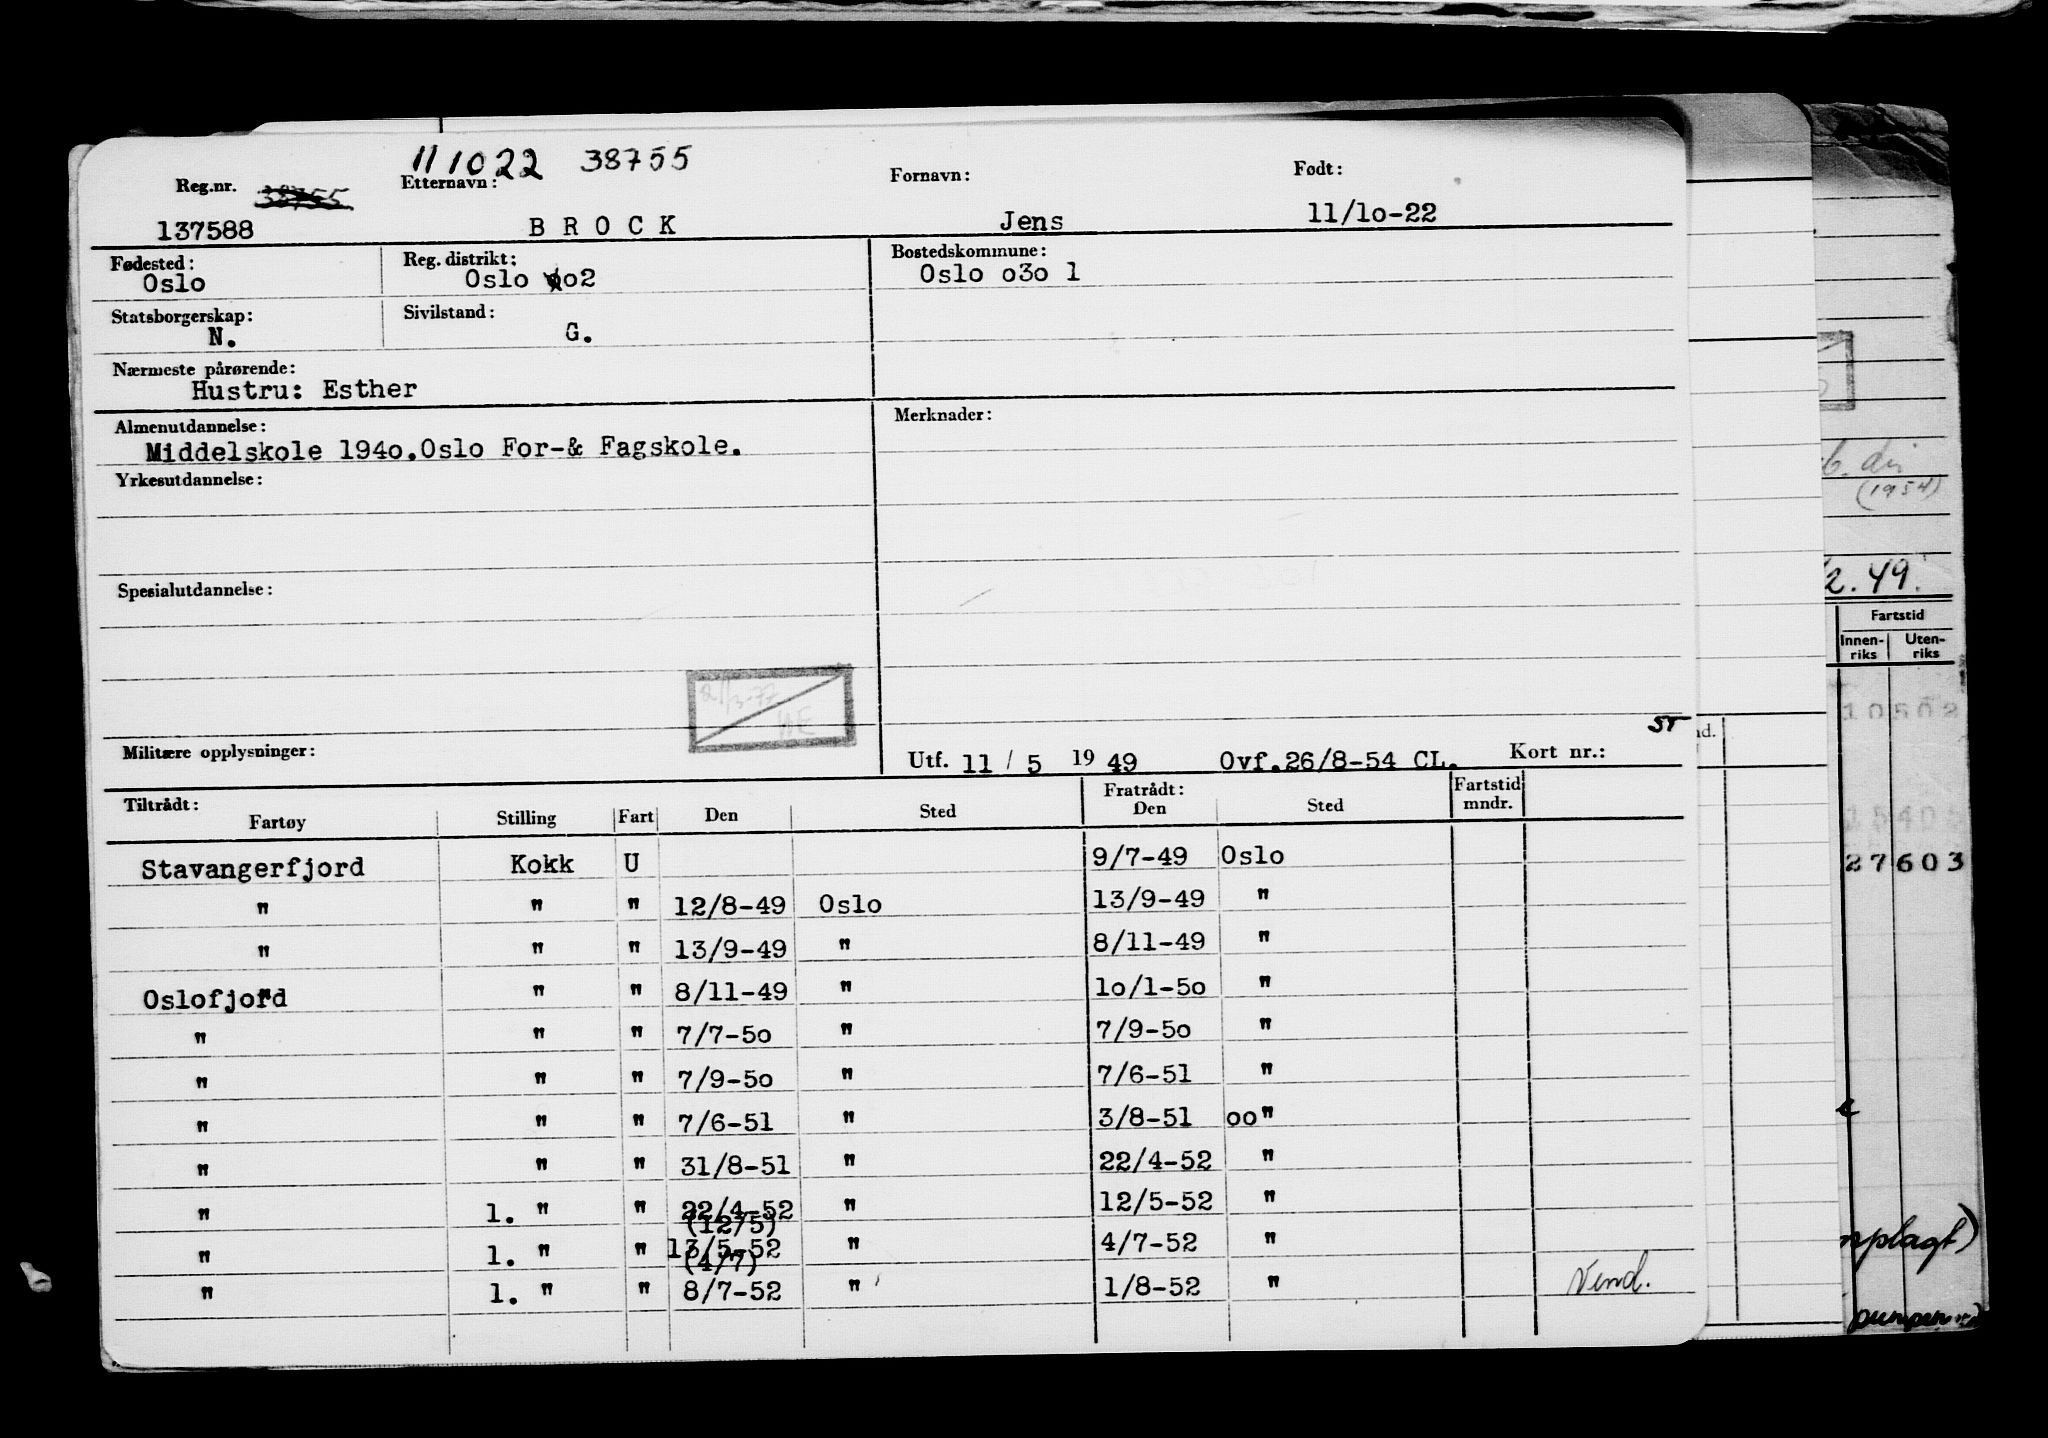 111022 38755
Reg.nr. 38755 Etternavn: Fornavn: Født:
137588 BROCK Jens 11/1o-22
Fødested: Reg. distrikt: Bostedskommune:
Oslo Oslo oo2 Oslo o3o 1
Statsborgerskap: Sivilstand:
N. G.
Nærmeste pårørende:
Hustru: Esther
Almenutdannelse: Merknader:
Middelskole 194o.Oslo For-& Fagskole.
Yrkesutdannelse:
Spesialutdannelse:
Militære opplysninger: Utf. 11 / 5 19 49 Ovf.26/8-54 CL. Kort nr.: ST
Tiltrådt: Fratrådt: Fartstid
Fartøy Stilling Fart Den Sted Den Sted mndr.
Stavangerfjord Kokk U 9/7-49 Oslo
" " " 12/8-49 Oslo 13/9-49 "
" " " 13/9-49 " 8/11-49 "
Oslofjord " " 8/11-49 " 1o/1-5o "
" " " 7/7-5o " 7/9-5o "
" " " 7/9-5o " 7/6-51 "
" " " 7/6-51 " 3/8-51 oo"
" " " 31/8-51 " 22/4-52 "
" 1. " " 22/4-52 " 12/5-52 "
(12/5)
" 1. " " 13/5-52 " 4/7-52 "
(4/7)
" 1. " " 8/7-52 " 1/8-52 " Vend.
(1954)
2.49.
Fartstid
Innen-riks Uten-riks
10502
27603